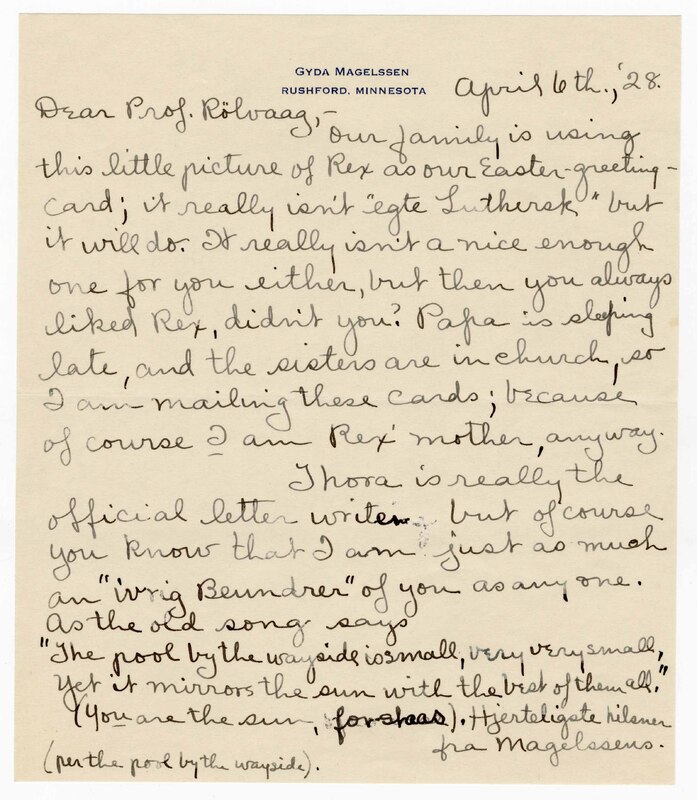 GYDA MAGELSSEN
RUSHFORD, MINNESOTA
April 6th., '28.
Dear Prof. Rölvaag,-
Our family is using
this little picture of Rex as our Easter-greeting-
card; it really isn't "egte Luthersk" but
it will do. It really isn't a nice enough
one for you either, but then you always
liked Rex, didn't you? Papa is sleeping
late, and the sisters are in church, so
I am mailing these cards; because
of course I am Rex' mother, anyway.
Thora is really the
official letter writer but of course
you know that I am just as much
an "ivrig Beundrer" of you as any one.
As the old song says
"The pool by the wayside is small, very very small,
Yet it mirrors the sun with the best of them all."
(You are the sun, forstaas). Hjerteligste hilsner
fra Magelssens.
(per the pool by the wayside).